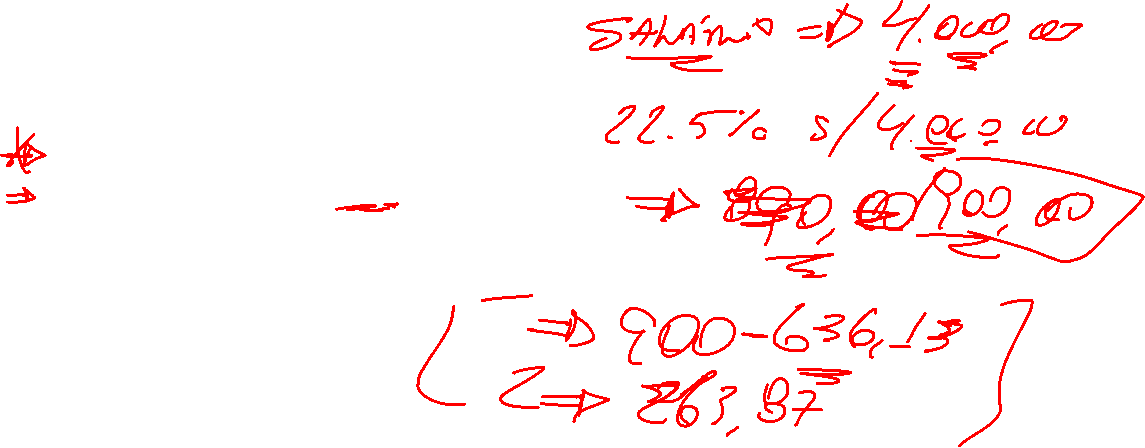 SALÁRIO => 4.000,00
22.5% s/4.000,00
=> 900,00
=> 900-636,13
=> 263,87